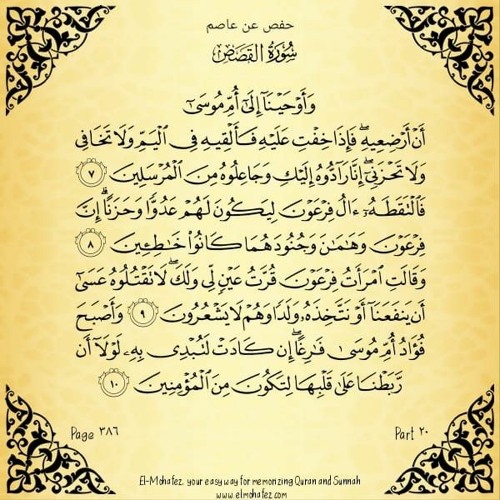 حفص عن عاصم
سُورَةُ القَصَصِ
وَأَوْحَيْنَآ إِلَىٰٓ أُمِّ مُوسَىٰٓ
أَنْ أَرْضِعِيهِ ۖ فَإِذَا خِفْتِ عَلَيْهِ فَأَلْقِيهِ فِى ٱلْيَمِّ وَلَا تَخَافِى
وَلَا تَحْزَنِىٓ ۖ إِنَّا رَآدُّوهُ إِلَيْكِ وَجَاعِلُوهُ مِنَ ٱلْمُرْسَلِينَ ٧
فَٱلْتَقَطَهُۥٓ ءَالُ فِرْعَوْنَ لِيَكُونَ لَهُمْ عَدُوًّا وَحَزَنًا ۗ إِنَّ
فِرْعَوْنَ وَهَٰمَٰنَ وَجُنُودَهُمَا كَانُوا۟ خَٰطِـِٔينَ ٨
وَقَالَتِ ٱمْرَأَتُ فِرْعَوْنَ قُرَّتُ عَيْنٍ لِّى وَلَكَ ۖ لَا تَقْتُلُوهُ عَسَىٰٓ
أَن يَنفَعَنَآ أَوْ نَتَّخِذَهُۥ وَلَدًا وَهُمْ لَا يَشْعُرُونَ ٩ وَأَصْبَحَ
فُؤَادُ أُمِّ مُوسَىٰ فَٰرِغًا ۖ إِن كَادَتْ لَتُبْدِى بِهِۦ لَوْلَآ أَن
رَّبَطْنَا عَلَىٰ قَلْبِهَا لِتَكُونَ مِنَ ٱلْمُؤْمِنِينَ ١٠
Page ٣٨٦ Part ٢٠
El-Mohafez, your easy way for memorizing Quran and Sunnah
www.elmohafez.com